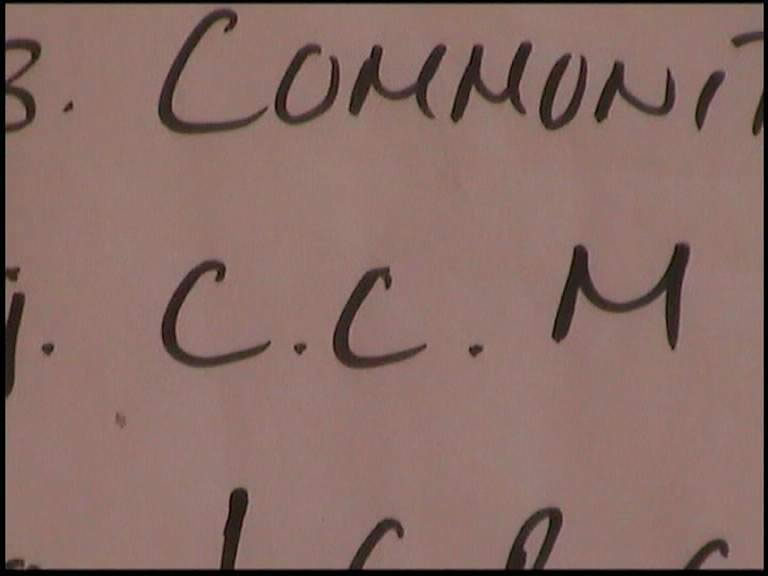 3. COMMUNIT
. C.C.M